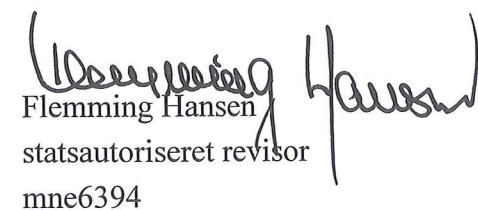 Flemming Hansen
Flemming Hansen
statsautoriseret revisor
mne6394